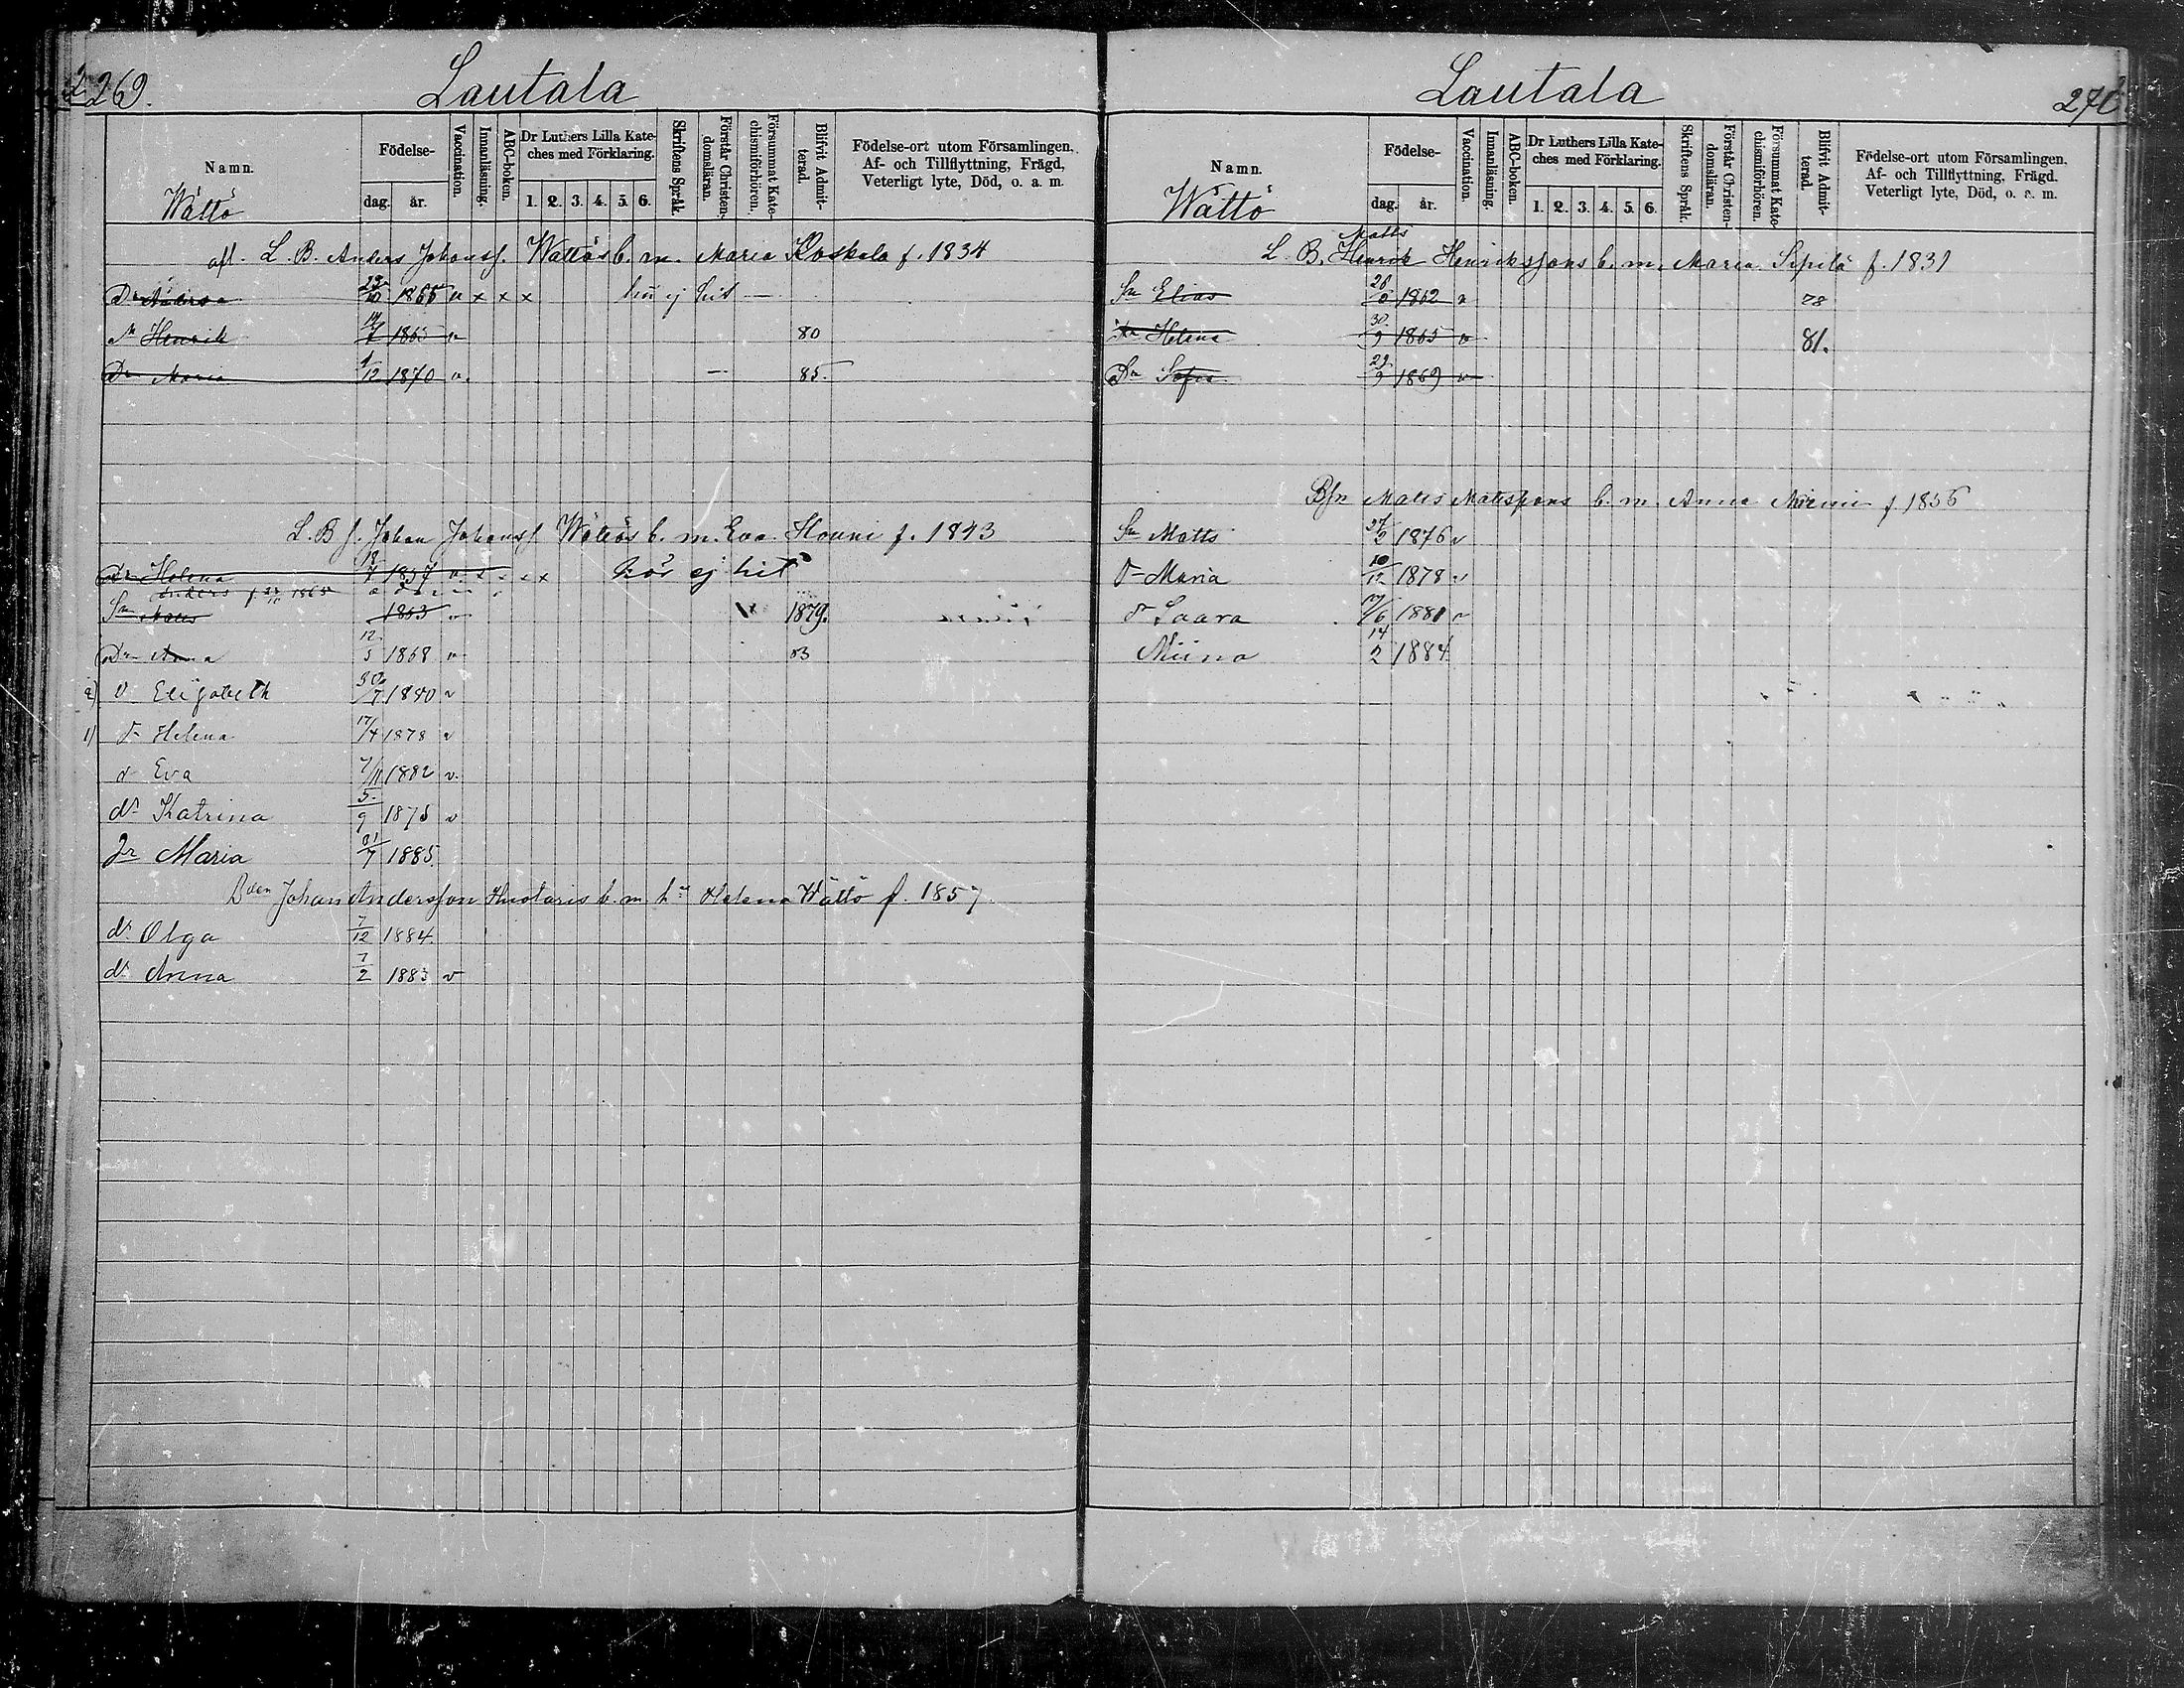 269.
Lautala
Namn.
Födelse-
dag.
år.
Vaccination.
Innanläsning.
ABC-boken.
Dr Luthers Lilla Kate-
ches med Förklaring.
1. 2. 3. 4. 5. 6.
Skriftens Språk.
Förstår Christen-
domsläran.
Försummat Kate-
chismiförhören.
Blifvit Admit-
terad.
Födelse-ort utom Församlingen.
Af- och Tillflyttning, Frägd,
Veterligt lyte, Död, o. a. m.
Wättö
afl. L. B. Anders Johanss. Wättös b. m. Maria Koskela f. 1834
Dr 23/10 1855 v x x x hör ej hit —
Henrik 1865 v 80
Dr Maria 1/12 1870 v. — 85.
L. B. f. Johan Johanss Wättös b. m. Eva Houni f. 1843
Dr Helena 1857 v x x x x hör ej hit
Anders f. 1865
Sn Matts 1863 v 1879.
Dr Anna 12/5 1868 v 83
2) d Elisabeth 30/7 1880 v
1) dr Helena 17/4 1878 v
d Eva 7/11 1882 v.
dr Katrina 5/9 1875 v
Maria 1885.
Johan Andersson Huotaris b. m. h. Helena Wättö f. 1857
dr Olga 7/12 1884.
dr Anna 7/2 1883 v
Lautala
270
Namn.
Födelse-
dag.
år.
Vaccination.
Innanläsning.
ABC-boken.
Dr Luthers Lilla Kate-
ches med Förklaring.
1. 2. 3. 4. 5. 6.
Skriftens Språk.
Förstår Christen-
domsläran.
Försummat Kate-
chismiförhören.
Blifvit Admit-
terad.
Födelse-ort utom Församlingen.
Af- och Tillflyttning, Frägd.
Veterligt lyte, Död, o. a. m.
Wättö
Matts
L. B. Henrik Henrikssons b. m. Maria Sipilä f. 1831
Sn Elias 1862 v 78
Dr Helena 30/9 1865 v 81.
Dr Sofia 29/9 1869 v
Bsn Matts Mattssons b. m. Anna Niemi f. 1856
Sn Matts 27/2 1876 v
d Maria 10/12 1878 v
dr Saara 1881 v
Miina 14/2 1884.